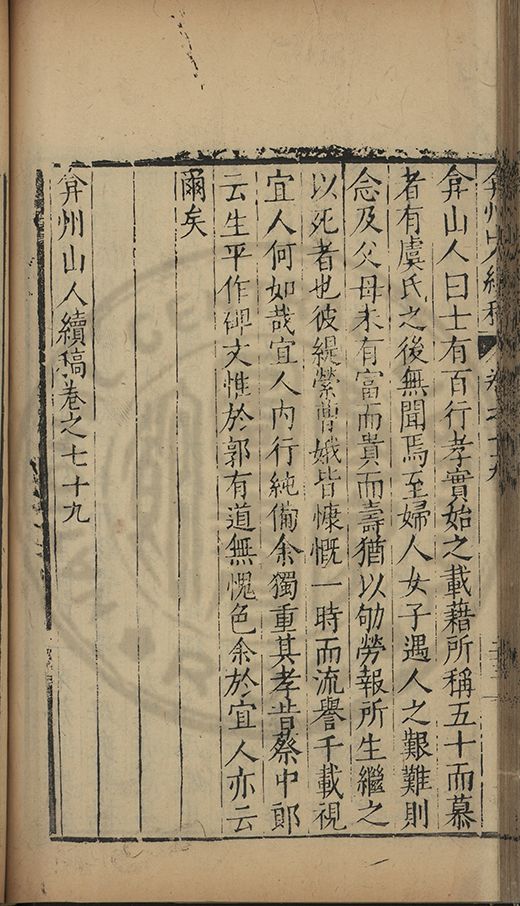 弇州山人續稿 卷之七十九
弇山人曰士有百行孝實始之載藉所稱五十而慕
者有虞氏之後無聞焉至婦人女子遇人之艱難則
念及父母未有富而貴而壽猶以劬勞報所生繼之
以死者也彼緹縈曹娥皆慷慨一時而流譽千載視
宜人何如哉宜人內行純備余獨重其孝昔蔡中郎
云生平作碑文惟於郭有道無愧色余於宜人亦云
爾矣
弇州山人續稿卷之七十九